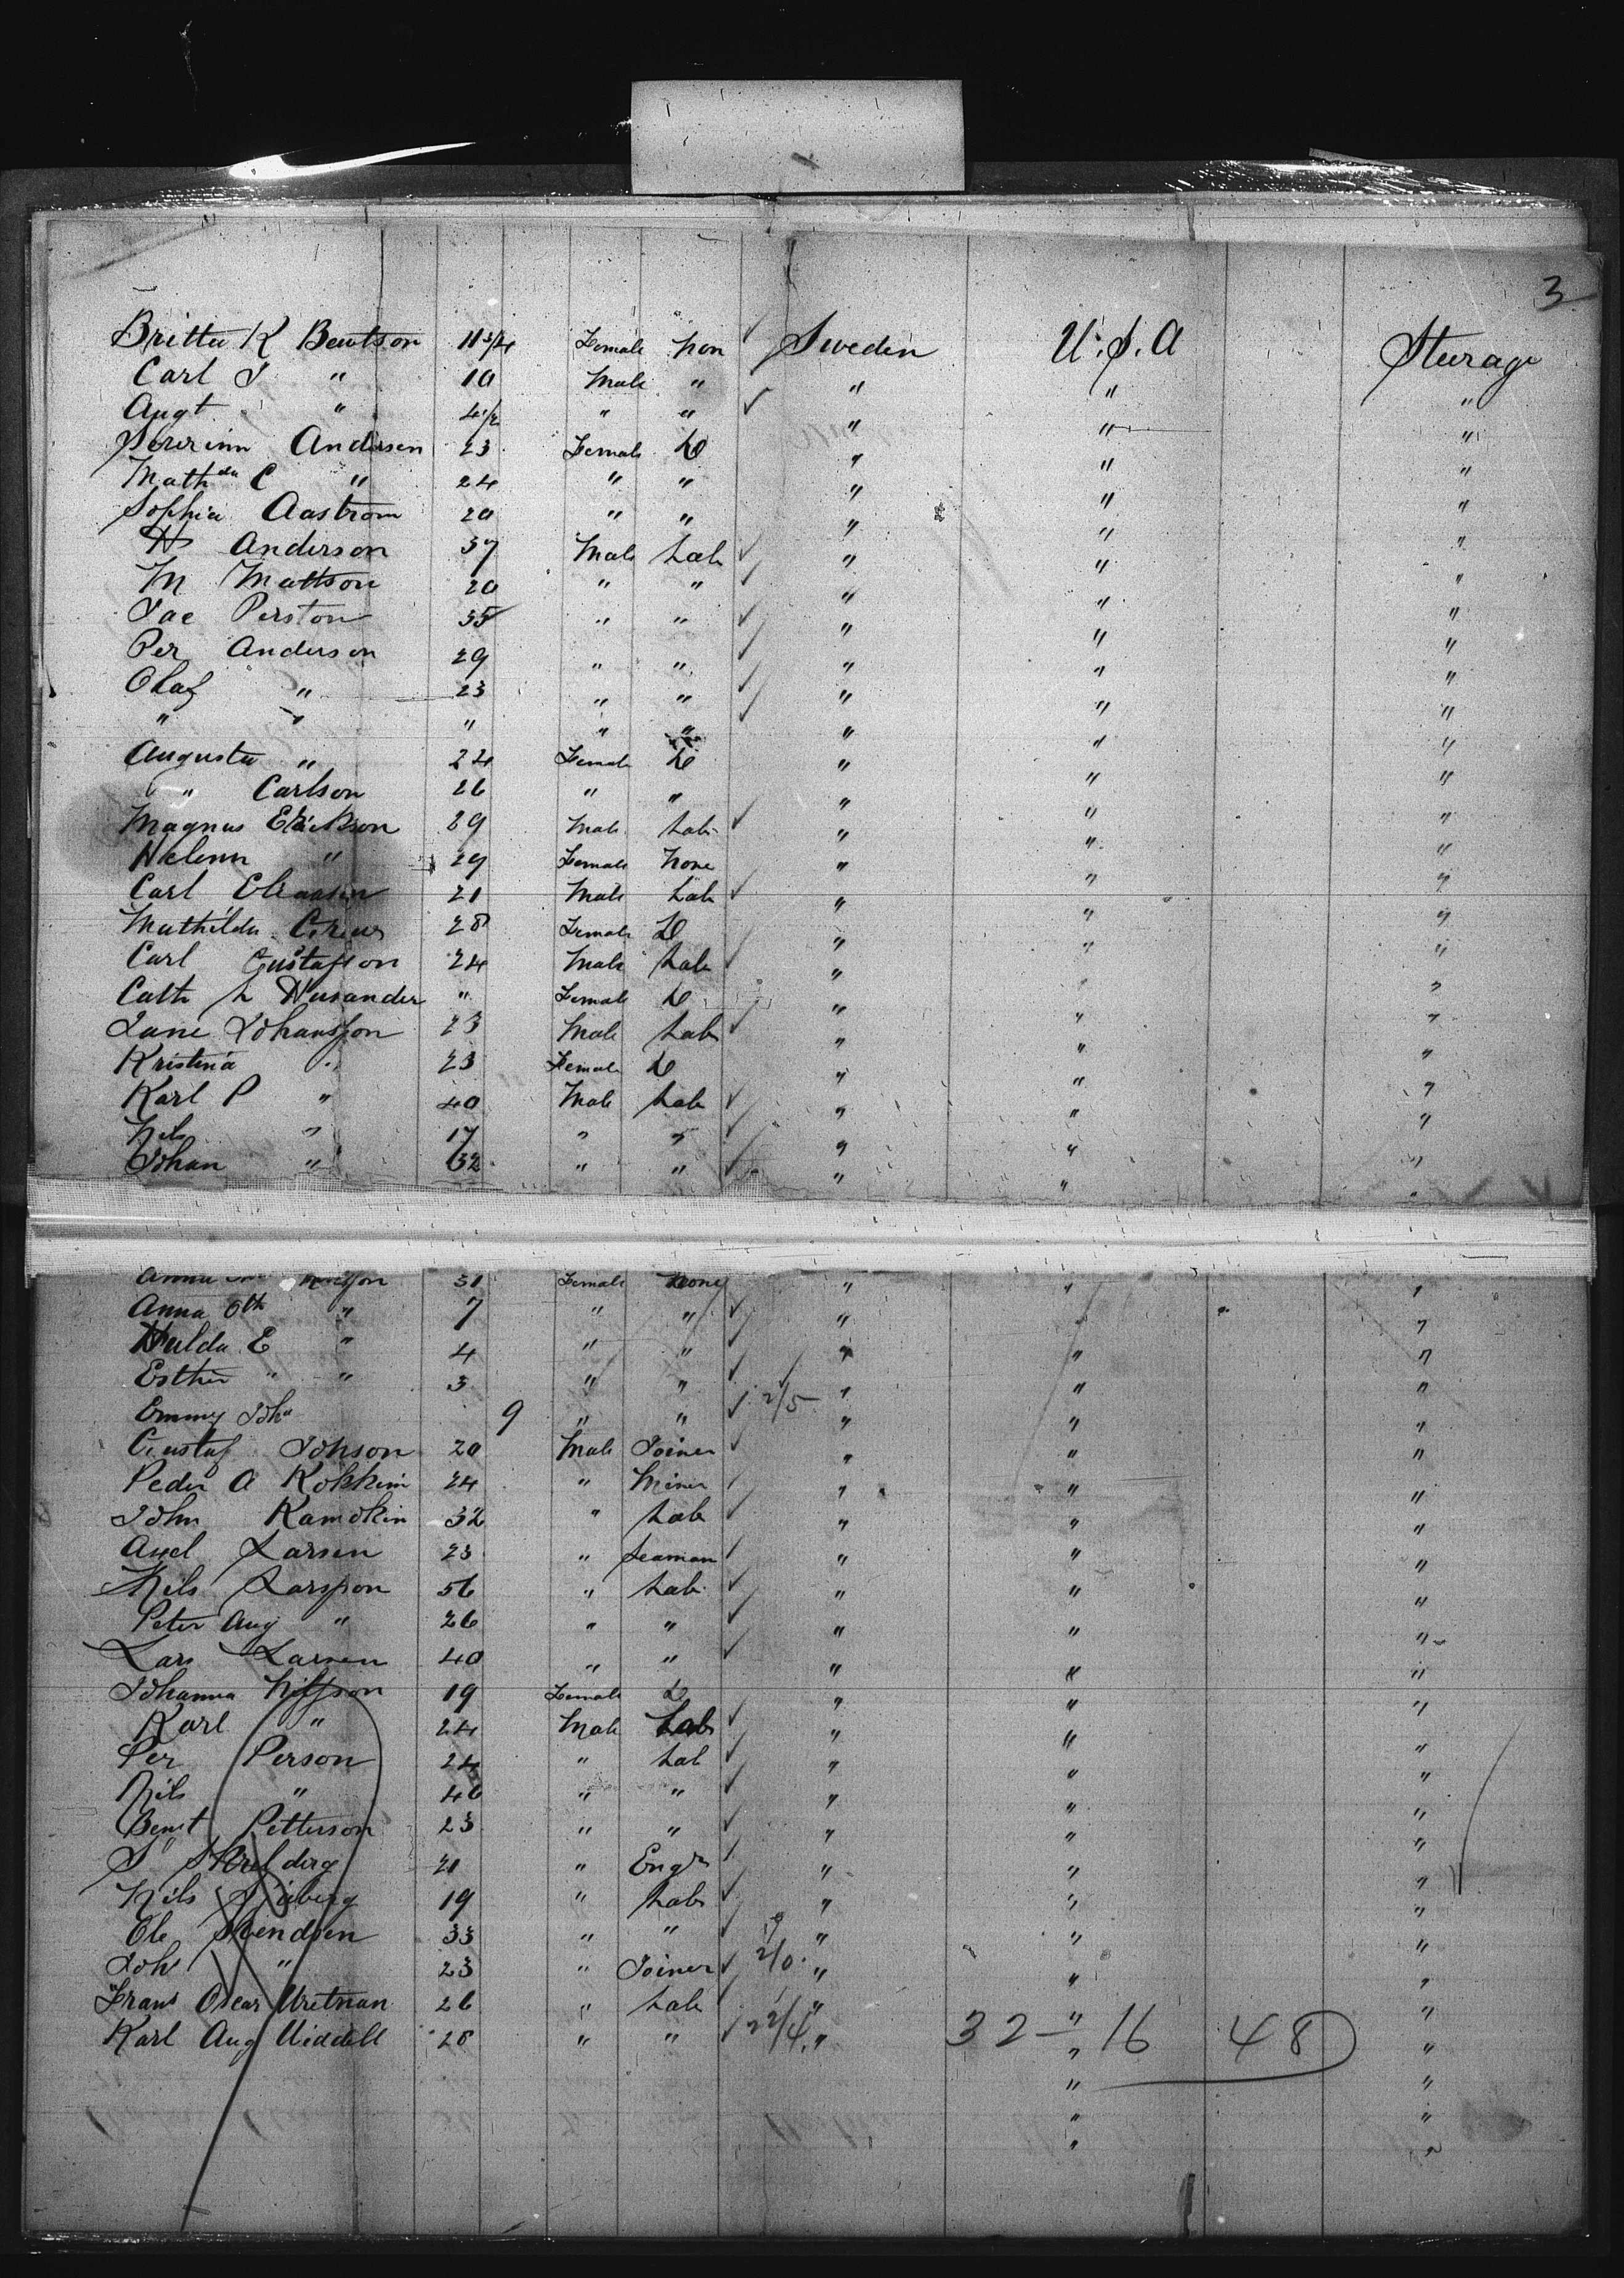 3
Britta K Bentson 11 3/4 Female Non Sweden U.S.A Steerage
Carl J " 10 Male " " " "
Augt " 4 1/2 " " " " "
Andersen 23 Female D " " "
Math da C " 24 " " " " "
Sophia Aastrom 20 " " " " "
H Anderson 37 Male Lab " " "
M Mattson 20 " " " " "
Jac Perston 35 " " " " "
Per Anderson 29 " " " " "
Olaf " 23 " " " " "
" " " " " " " "
Augusta " 24 Female D " " "
" Carlson 26 " " " " "
Magnus Erickson 29 Male Lab " " "
Helena " 29 Female None " " "
Carl 21 Male Lab " " "
Mathilda 28 Female D " " "
Carl Gustafson 24 Male Lab " " "
Cath L " Female D " " "
Johansson 23 Male Lab " " "
Kristina " 23 Female D " " "
Karl P " 40 Male Lab " " "
Nils " 17 " " " " "
Johan " 32 " " " " "
Anna 31 Female None " " "
Anna Oth " 7 " " " " "
Hulda E " 4 " " " " "
Esther " " 3 " " " " "
Emmy Joh a 9 " " 2/5 " " "
Gustaf Johson 20 Male Joiner " " "
Peder A 24 " Miner " " "
John 32 " Lab " " "
Axel Larsen 23 " Seaman " " "
Nils Larsson 56 " Lab " " "
Peter Aug " 26 " " " " "
Lars Larsen 40 " " " " "
Johanna Nilsson 19 Female D " " "
Karl " 24 Male Lab " " "
Per Person 24 " Lab " " "
Nils " 46 " " " " "
Bengt Petterson 23 " " " " "
S 21 " Engr " " "
Nils Sjoberg 19 " Lab " " "
Ole Svendsen 33 " " " " "
Joh " 23 " Joiner 2/0 " " "
Frans Oscar 26 " Lab " " "
Karl Aug Widdell 28 " " 22/4 " 32 — 16 48 " "
" "
" "
" "